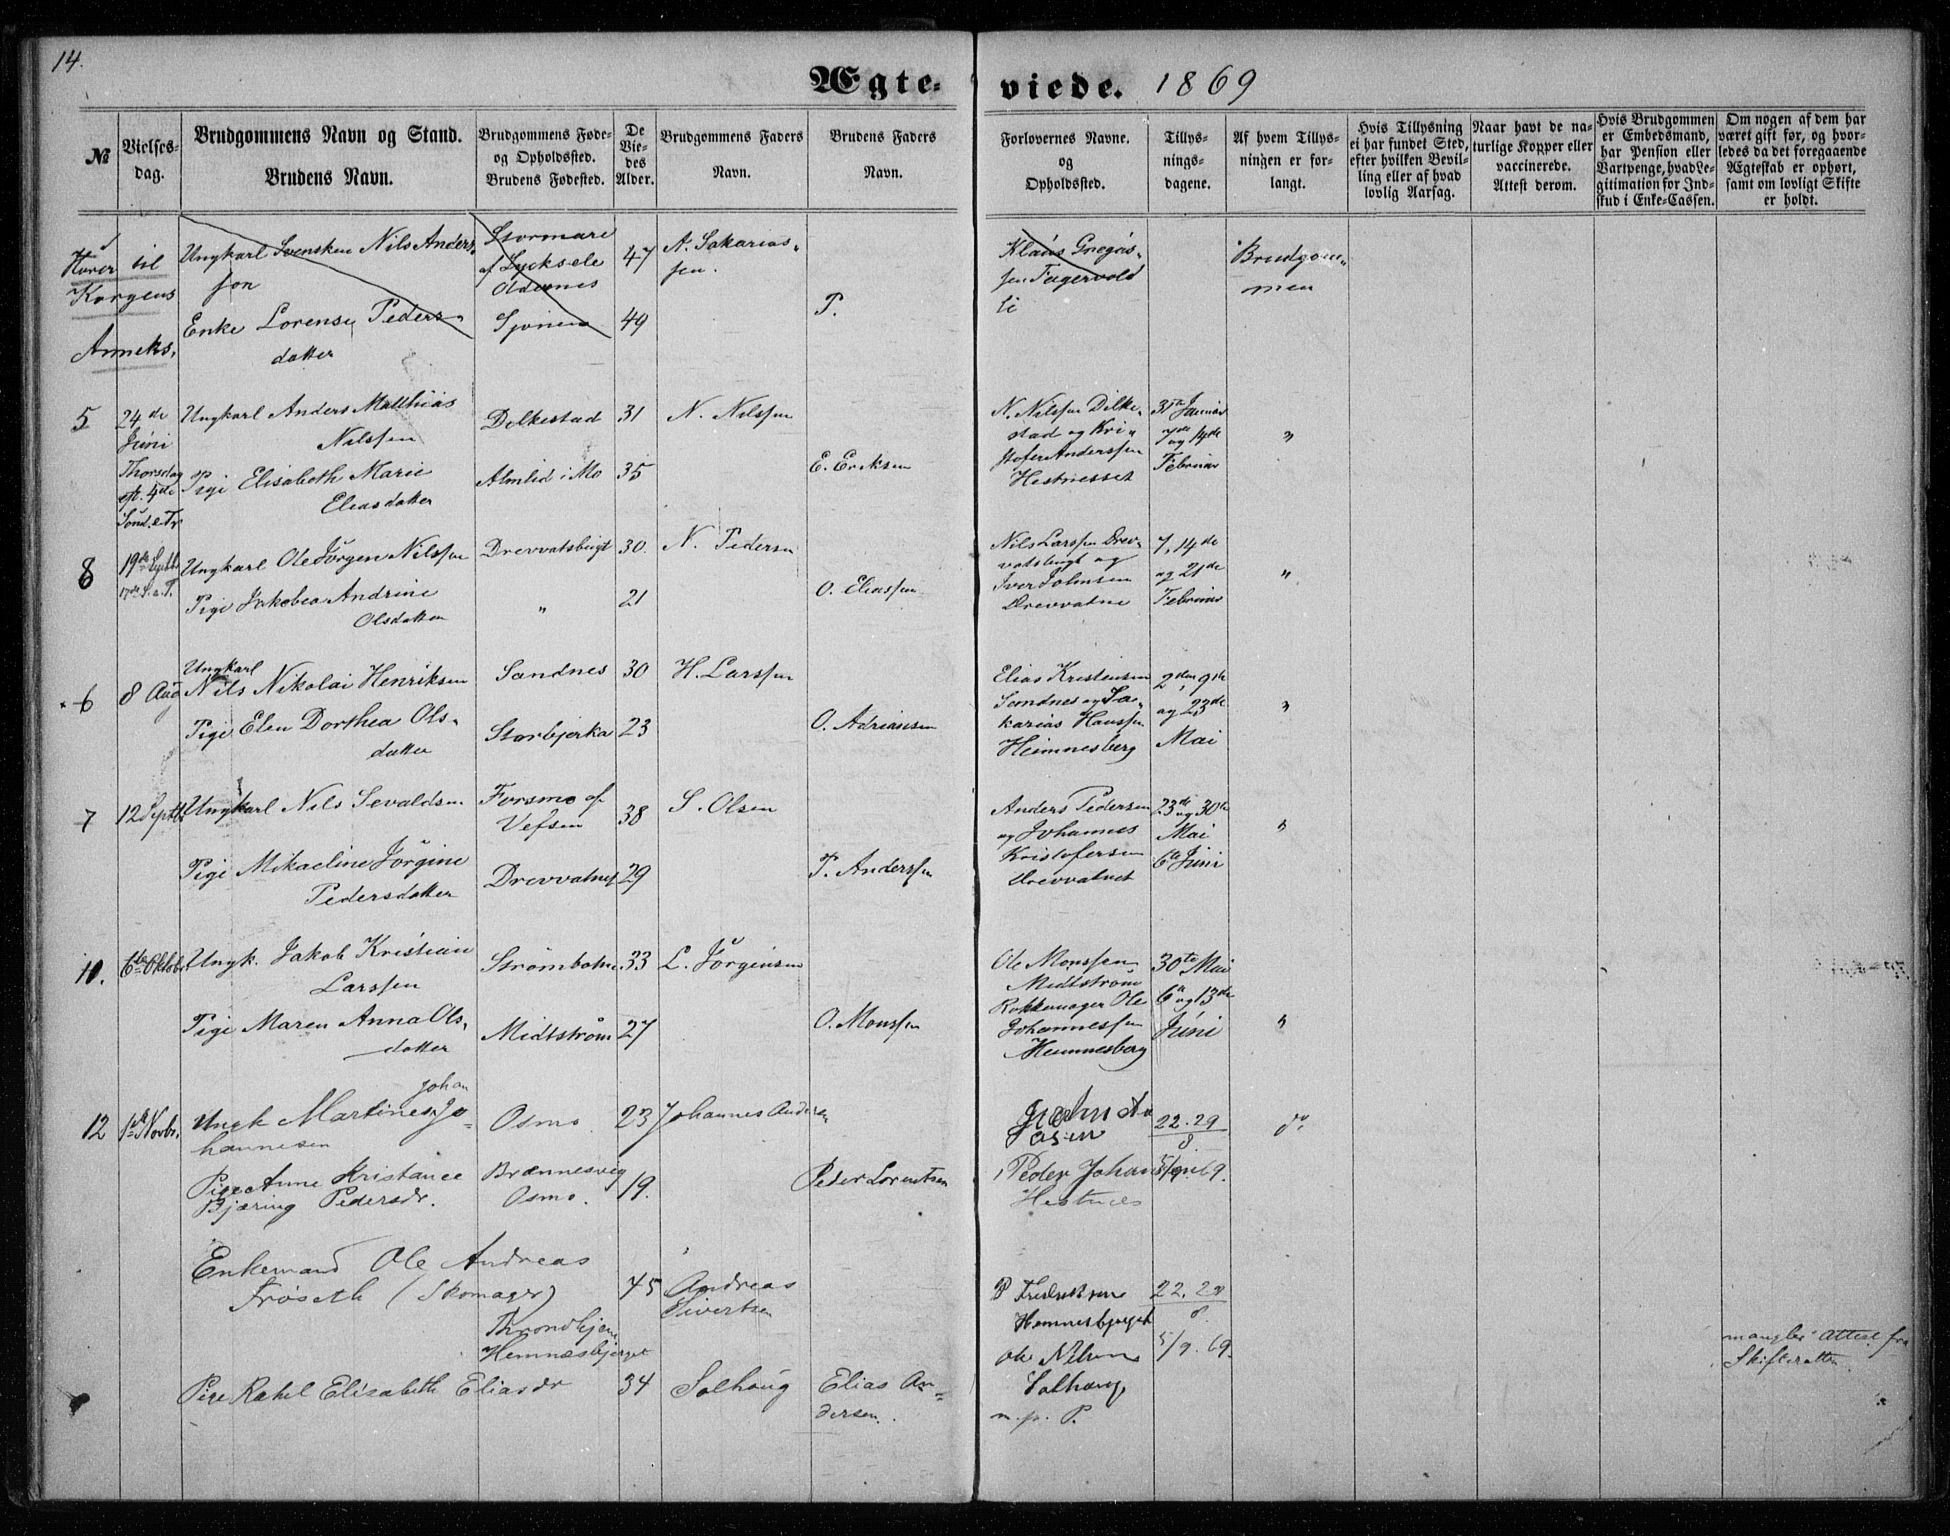 14.
Ægte-
viede. 1869
№
Vielses-
dag.
Brudgommens Navn og Stand.
Brudens Navn.
Brudgommens Føde-
og Opholdssted.
Brudens Fødested.
De
Vie-
des
Alder.
Brudgommens Faders
Navn.
Brudens Faders
Navn.
Forlovernes Navne.
og
Opholdssted.
Tillys-
nings-
dagene.
Af hvem Tillys-
ningen er for-
langt.
Hvis Tillysning
ei har fundet Sted,
efter hvilken Bevil-
ling eller af hvad
lovlig Aarsag.
Naar havt de na-
turlige Kopper eller
vaccinerede.
Attest derom.
Hvis Brudgommen
er Embedsmand,
har Pension eller
Vartpenge, hvad Le-
gitimation for Ind-
skud i Enke-Cassen.
Om nogen af dem har
været gift før, og hvor-
ledes da det foregaaende
Ægteskab er ophørt,
samt om lovligt Skifte
er holdt.
Hører til
Korgens
Anneks.
Ungkarl Svensken Nils Anders-
son
Enke Lorense Peders-
datter
Stormare
af Lycksele
Oldernes
Sjonen
47
49
A. Sakarias-
sen.
P.
Klaus Gregus-
sen Fagervold
li
Brudgom-
men
5
24de
Juni
Thorsdag
ef. 4de
Sønd. e Tr
Ungkarl Anders Matthias
Nilssen
Pige Elisabeth Marie
Eliasdatter
Dolkestad
Almlid i Mo
31
35
N. Nilssen
E. Eriksen
N. Nilssen Dilke-
stad og Kri-
stofer Anderssen
Hestnesset
31te Januar
7de og 14de
Februar
"
8
19de Septb.
17de S. e. T.
Ungkarl Ole Jørgen Nilssen
Pige Jakobea Andrine
Olsdatter
Drevvatsbugt
"
30.
21
N. Pedersen
O. Eliassen
Nils Larssen Drev-
vatsbugt og
Iver Johnsen
Drevvatne
7, 14de
og 21de
Februar
"
6
8 Aug
Ungkarl
Nils Nikolai Henriksen
Pige Elen Dorthea Ols-
datter
Sandnes
Storbjerka
30
23
H. Larssen
O. Adriansen
Elias Kristensen
Sandnes og Sa-
karias Hanssen
Hemnesberg
2den, 9de
og 23de
Mai
"
7
12 Septb.
Ungkarl Nils Sevaldsen
Pige Mikaeline Jørgine
Pedersdatter
Forsmo af
Vefsen
Drevvatnes
38
29
S. Olsen
P. Anderssen
Anders Pedersen
og Johannes
Kristofersen
Drevvatnet
23de og 30te
Mai
6te Juni
"
10.
6te Oktobr.
Ungk. Jakob Kristian
Larssen
Pige Maren Anna Ols-
datter
Strømbotne.
Midtstrøm
33
27
L. Jørgensen
O. Monssen
Ole Monssen
Midtstrøm
Rokkemager Ole
Johannessen
Hemnesberg
30te Mai
6te og 13de
Juni
"
12
1ste Novbr.
Johan
Ungk Martines Jo-
hannesen
Pige Anne Kristance
Bjæring Pedersdr.
Osmo
Brennesvig
Osmo.
23
19.
Johannes Andersen
Peder Lorentsen
Peder Johan
Hestnes
22. 29
8
5/9. 69.
do.
Enkemand Ole Andreas
Frøseth (Skomager)
Throndhjem
Hemnæsbjerget
Pige Rahel Elisabeth Eliasdr
45
34
Andreas
Sivertsen
Solhaug
Elias An-
dersen.
P Fredriksen
Hemnesbjerget
Ole Nilsen
Solhaug
m. p. P.
22. 29
8
5/9. 69.
mangler Attest fra
Skifteretten.